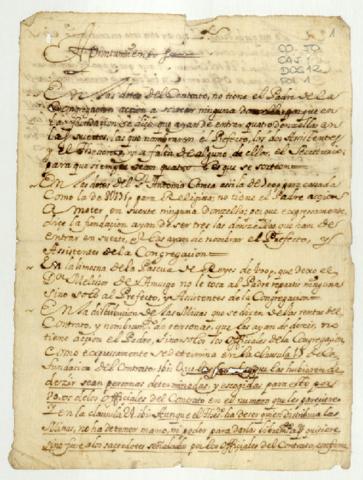 1
CO-JO
CAJ 1
DOC 12
FOL 1
Apuntamientos
En las dotes del Contrato, no tiene el Padre de la
Congregacion accion a meter ninguna donzella, porque en
las fundacion se dize que ayan de entrar quatro donzellas en
las suertes, las que nombraren el Prefecto, y los Assistentes
y el Thesorero, y a falta de alguno de ellos el Secretario
para que siempre sean quatro los que se sorteen
En las dotes del Antonio Correa assi la de 500 para casada
Como la de para Religiosa; no tiene el Padre accion
a meter en suerte ninguna donzella; por que expresamente
dice la fundacion ayan de ser tres las donzellas que han de
entrar en suerte, y las ayan de nombrar el Prefecto, y
Assistentes de la Congregacion
En la limosna de la Pascua de Reyes de que dexo el
D.r Melchor de Amusgo no le toca al Padre repartir ninguna
sino solo al Prefecto, y Assistentes de la Congregacion
En la distribucion de las Missas que se dizen de las rentas del
Contrato, y nombramto de personas, que las ayan de dezir, no
tiene accion el Padre, sino solos los officiales de la Congregacion
Como expresamente se determina en la clausula 18 de la
fundacion del Contrato ibi: que las hubieren de
dezir sean personas determinadas, y escogidas para esto por
los officiales del Contrato en el numero que les pareciere
en la clausula ibi: Aunque el Thes.o ha de ser quien distribuia las
Missas, no ha de tener mano, ni poder para darlas a quien quisiere
sino fuere a los sacerdotes señalados por los officiales del Contrato, conforme